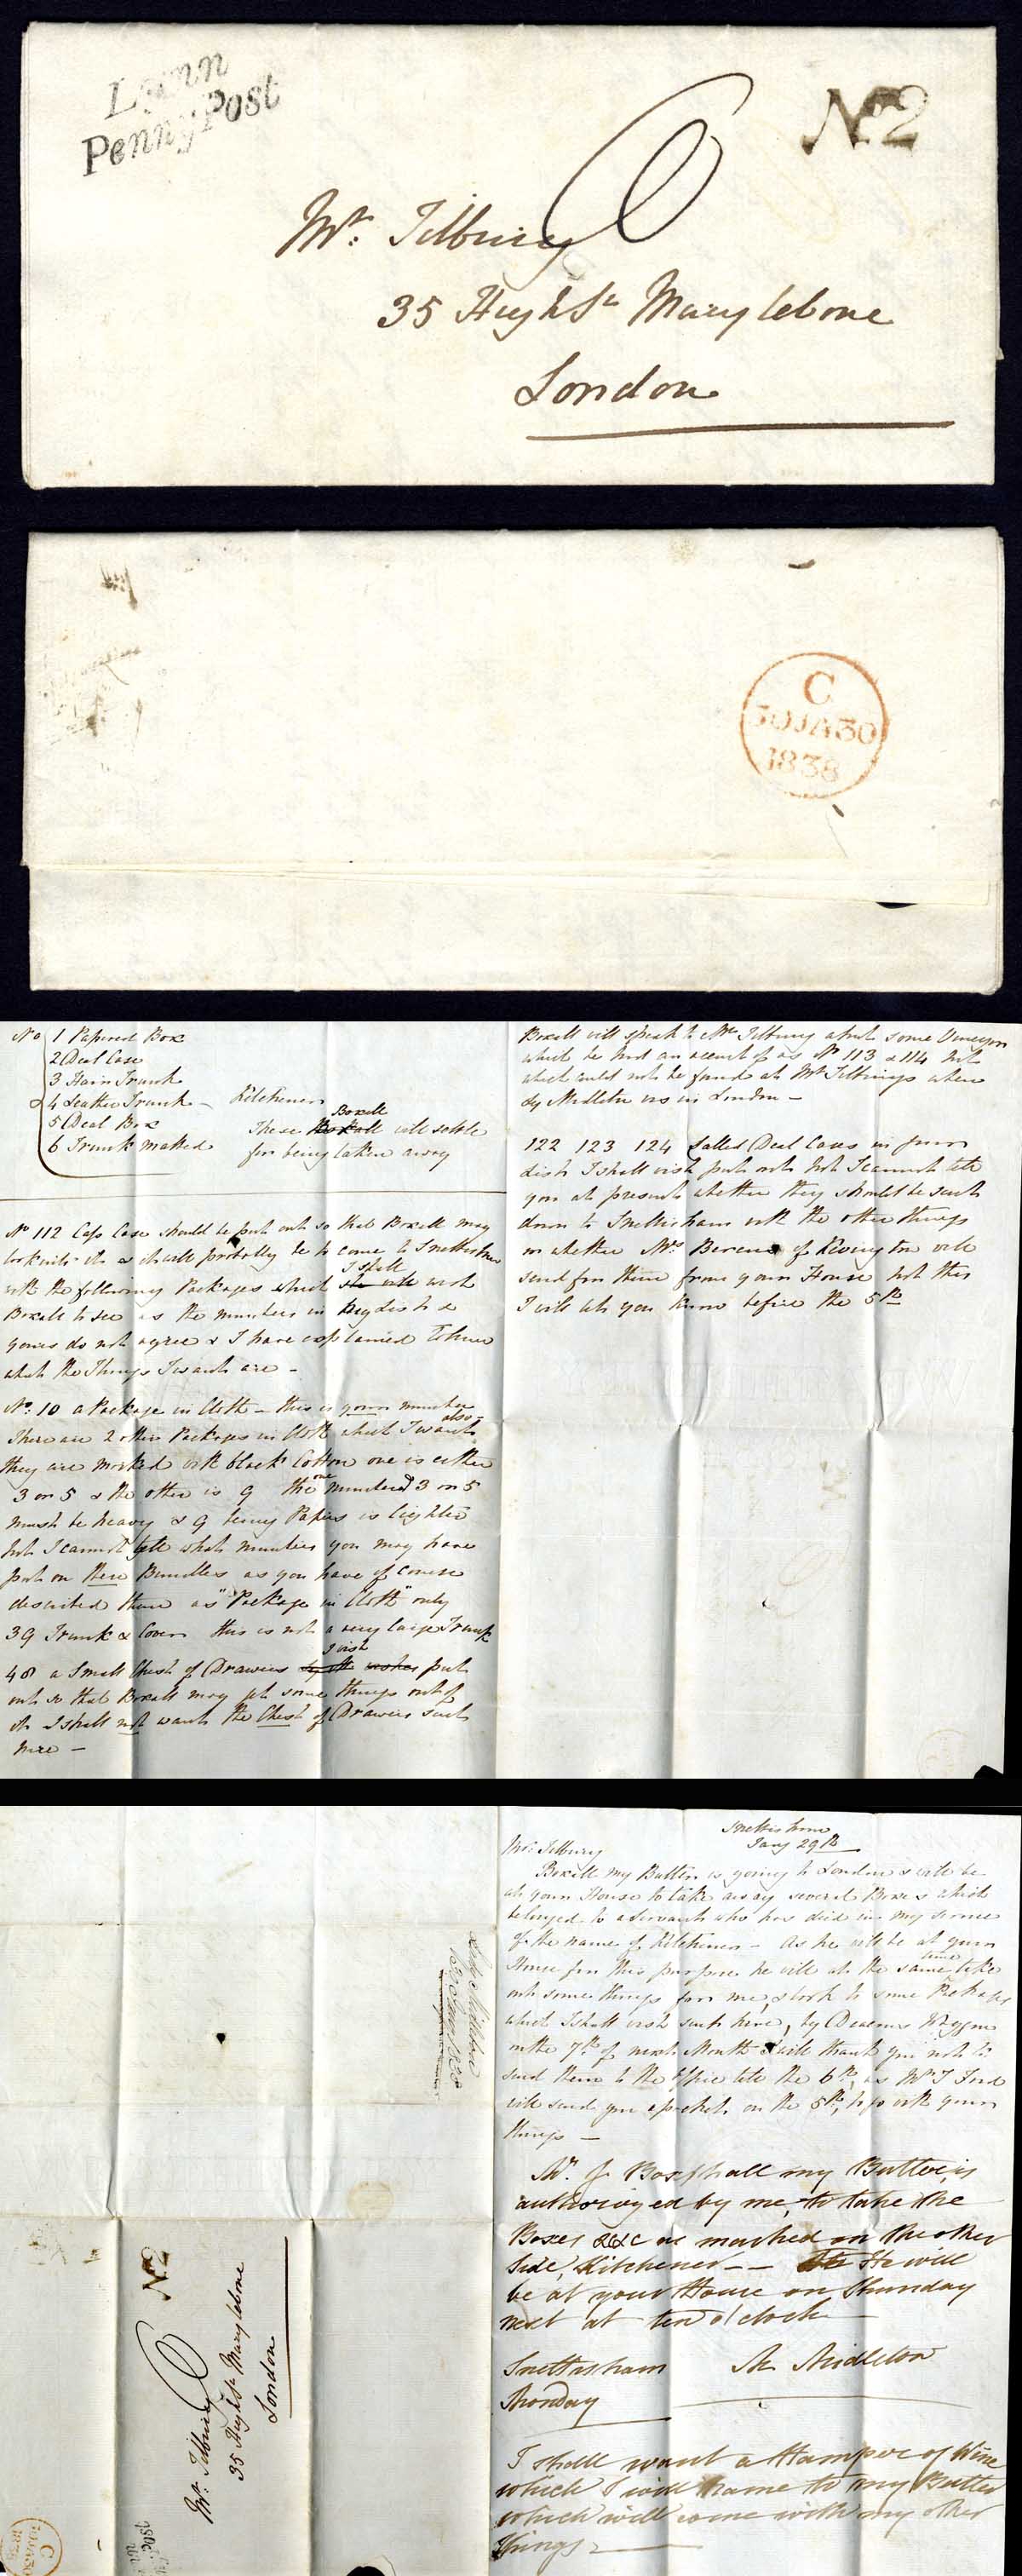 Lynn
Penny Post
No 2
Mr. Tilbury
35 High St Marylebone
London
C
30 JA 30
1838
No 1 Papered Box
2 Deal Case
3 Hair Trunk
4 Leather Trunk - Kitchener
5 Deal Box These Boxall will settle
6 Trunk matted for being taken away
No 112 Cap Case should be put out so that Boxall may
look into it & it will probably be to come to Snettisham
with the following Packages which I shall wish
Boxall to see as the numbers in my list &
yours do not agree & I have explained to him
what the Things I want are -
No. 10 a Package in Cloth - this is your number
There are 2 other Packages in Cloth which I want also -
they are marked with black Cotton one is either
3 or 5 & the other is 9 the one numbered 3 or 5
must be heavy & 9 being Papers is lighter
but I cannot tell what numbers you may have
put on these Bundles as you have of course
described them as "Package in Cloth" only
39 Trunk & Cover this is not a very large Trunk
48 a Small Chest of Drawers I wish put
out so that Boxall may get some things out of
it I shall not want the Chest of Drawers sent
here -
Boxall will speak to Mr Tilbury about some
which he had an account of as No 113 & 114 but
which could not be found at Mr Tilbury's when
Ly Middleton was in London -
122 123 124 Called Deal Cases in your
list I shall wish put out but I cannot tell
you at present whether they should be sent
down to Snettisham with the other things
or whether Mrs of will
send for them from your House but this
I will let you know before the 5th
Snettisham
Jany 29th
Mr. Tilbury
Boxall my Butler is going to London & will be
at your House to take away several Boxes which
belonged to a Servant who has died in my service
of the name of Kitchener - As he will be at your
House for this purpose he will at the same time take
out some things for me, & look to some Packages
which I shall wish sent here, by Waggon
on the 7th of next Month I will thank you not to
send them to the Office till the 6th, as Mr J Ford
will send you a packet on the 5th, to go with your
things -
Mr. J Boxshall my Butler, is
authorized by me, to take the
Boxes &c &c as marked on the other
side, Kitchener - - He will
be at your House on Thursday
next at ten o'clock
Snettisham M Middleton
Monday
I shall want a Hamper of Wine
which I will name to my Butler
which will come with my other
things -
Lady Middleton
Mr. Tilbury
35 High St Marylebone
London
No 2
C
30 JA 30
1838